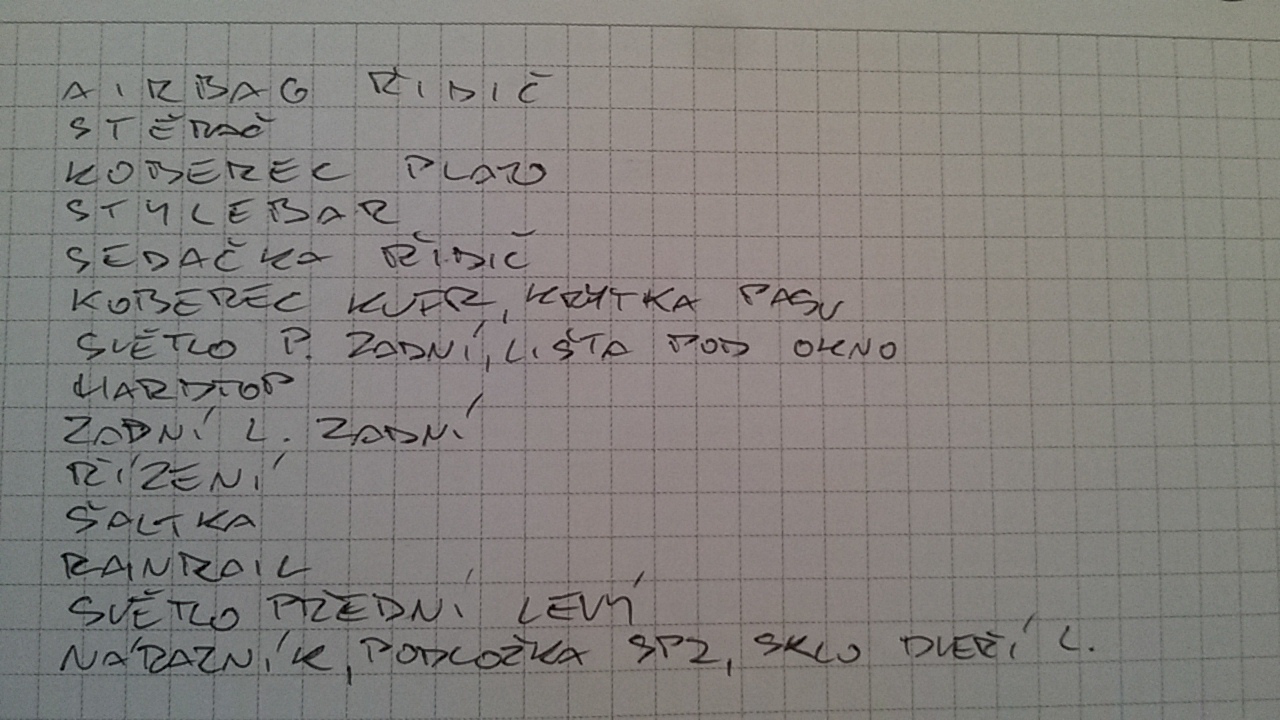 AIRBAG ŘIDIČ
STĚRAČ
KOBEREC PLATO
STYLEBAR
SEDAČKA ŘIDIČ
KOBEREC KUFR, KRYTKA PASU
SVĚTLO P. ZADNÍ, LIŠTA POD OKNO
HARDTOP
ZADNÍ L. ZADNÍ
ŘÍZENÍ
ŠALTKA
RAINRAIL
SVĚTLO PŘEDNÍ LEVÝ
NÁRAZNÍK, PODLOŽKA SPZ, SKLO DVEŘÍ L.